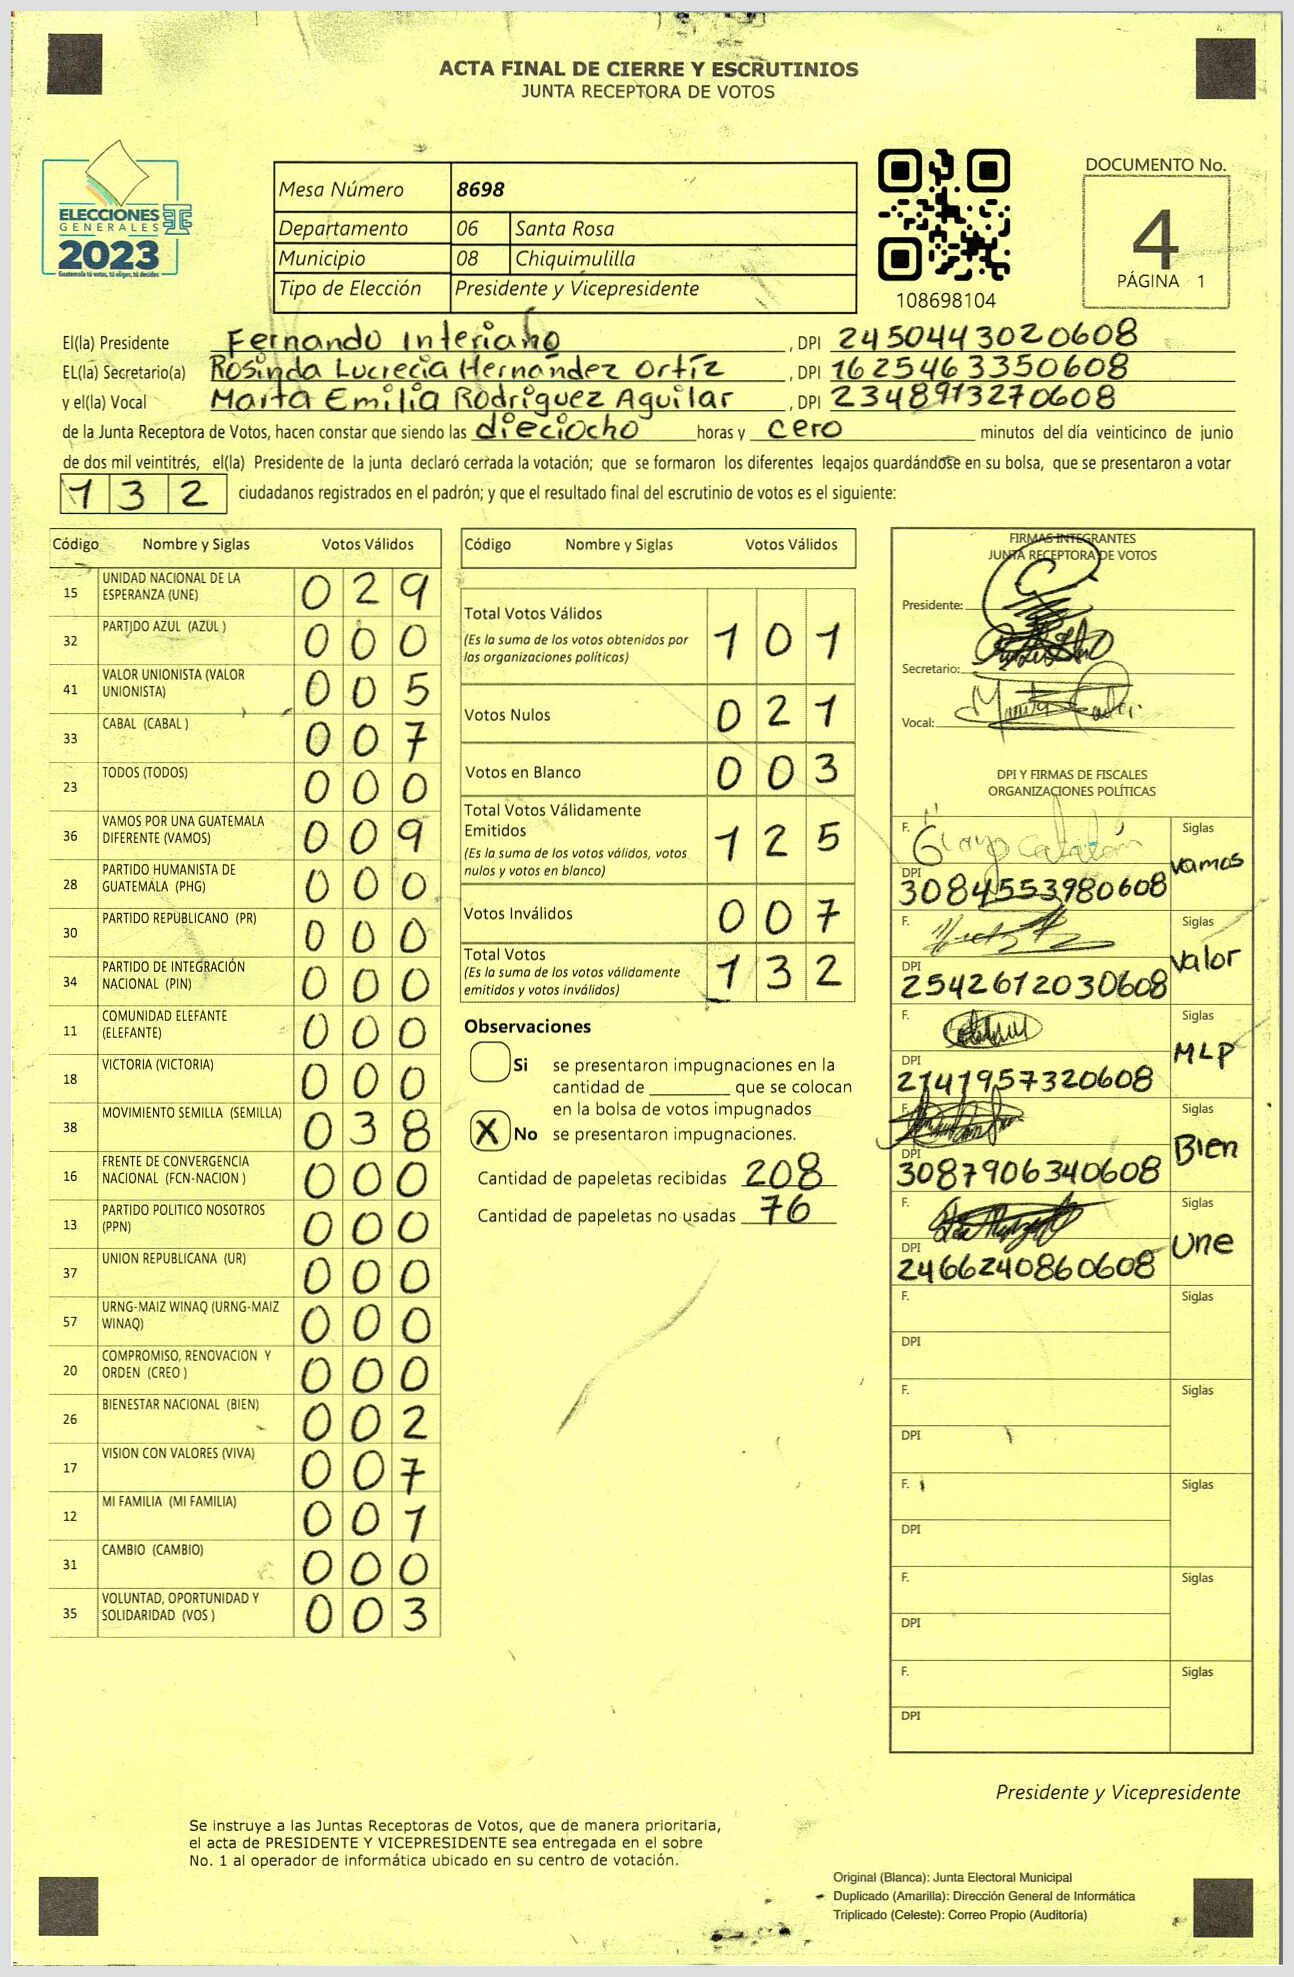 ACTA FINAL DE CIERRE Y ESCRUTINIOS
JUNTA RECEPTORA DE VOTOS
ELECCIONES
GENERALES
2023
Guatemala tú votas, tú eliges, tú decides
Mesa Número 8698
Departamento 06 Santa Rosa
Municipio 08 Chiquimulilla
Tipo de Elección Presidente y Vicepresidente
108698104
DOCUMENTO No.
4
PÁGINA 1
El(la) Presidente Fernando Interiano , DPI 2450443020608
EL(la) Secretario(a) Rosinda Lucrecia Hernández Ortíz , DPI 1625463350608
y el(la) Vocal Marta Emilia Rodríguez Aguilar , DPI 2348913270608
de la Junta Receptora de Votos, hacen constar que siendo las dieciocho horas y cero minutos del día veinticinco de junio
de dos mil veintitrés, el(la) Presidente de la junta declaró cerrada la votación; que se formaron los diferentes legajos guardándose en su bolsa, que se presentaron a votar
132 ciudadanos registrados en el padrón; y que el resultado final del escrutinio de votos es el siguiente:
Código Nombre y Siglas Votos Válidos
15 UNIDAD NACIONAL DE LA ESPERANZA (UNE) 029
32 PARTIDO AZUL (AZUL ) 000
41 VALOR UNIONISTA (VALOR UNIONISTA) 005
33 CABAL (CABAL ) 007
23 TODOS (TODOS) 000
36 VAMOS POR UNA GUATEMALA DIFERENTE (VAMOS) 009
28 PARTIDO HUMANISTA DE GUATEMALA (PHG) 000
30 PARTIDO REPUBLICANO (PR) 000
34 PARTIDO DE INTEGRACIÓN NACIONAL (PIN) 000
11 COMUNIDAD ELEFANTE (ELEFANTE) 000
18 VICTORIA (VICTORIA) 000
38 MOVIMIENTO SEMILLA (SEMILLA) 038
16 FRENTE DE CONVERGENCIA NACIONAL (FCN-NACION ) 000
13 PARTIDO POLITICO NOSOTROS (PPN) 000
37 UNION REPUBLICANA (UR) 000
57 URNG-MAIZ WINAQ (URNG-MAIZ WINAQ) 000
20 COMPROMISO, RENOVACION Y ORDEN (CREO ) 000
26 BIENESTAR NACIONAL (BIEN) 002
17 VISION CON VALORES (VIVA) 007
12 MI FAMILIA (MI FAMILIA) 001
31 CAMBIO (CAMBIO) 000
35 VOLUNTAD, OPORTUNIDAD Y SOLIDARIDAD (VOS ) 003
Código Nombre y Siglas Votos Válidos
Total Votos Válidos 101
(Es la suma de los votos obtenidos por
las organizaciones políticas)
Votos Nulos 021
Votos en Blanco 003
Total Votos Válidamente
Emitidos 125
(Es la suma de los votos válidos, votos
nulos y votos en blanco)
Votos Inválidos 007
Total Votos 132
(Es la suma de los votos válidamente
emitidos y votos inválidos)
Observaciones
Si se presentaron impugnaciones en la
cantidad de ________ que se colocan
en la bolsa de votos impugnados
X No se presentaron impugnaciones.
Cantidad de papeletas recibidas 208
Cantidad de papeletas no usadas 76
FIRMAS INTEGRANTES
JUNTA RECEPTORA DE VOTOS
Presidente:
Secretario:
Vocal:
DPI Y FIRMAS DE FISCALES
ORGANIZACIONES POLÍTICAS
F. Siglas vamos
DPI 3084553980608
F. Siglas Valor
DPI 2542612030608
F. Siglas MLP
DPI 2141957320608
F. Siglas Bien
DPI 3087906340608
F. Siglas Une
DPI 2466240860608
F. Siglas
DPI
F. Siglas
DPI
F. Siglas
DPI
F. Siglas
DPI
F. Siglas
DPI
Presidente y Vicepresidente
Se instruye a las Juntas Receptoras de Votos, que de manera prioritaria,
el acta de PRESIDENTE Y VICEPRESIDENTE sea entregada en el sobre
No. 1 al operador de informática ubicado en su centro de votación.
Original (Blanca): Junta Electoral Municipal
Duplicado (Amarilla): Dirección General de Informática
Triplicado (Celeste): Correo Propio (Auditoría)